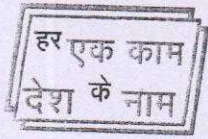 हर एक काम
देश के नाम